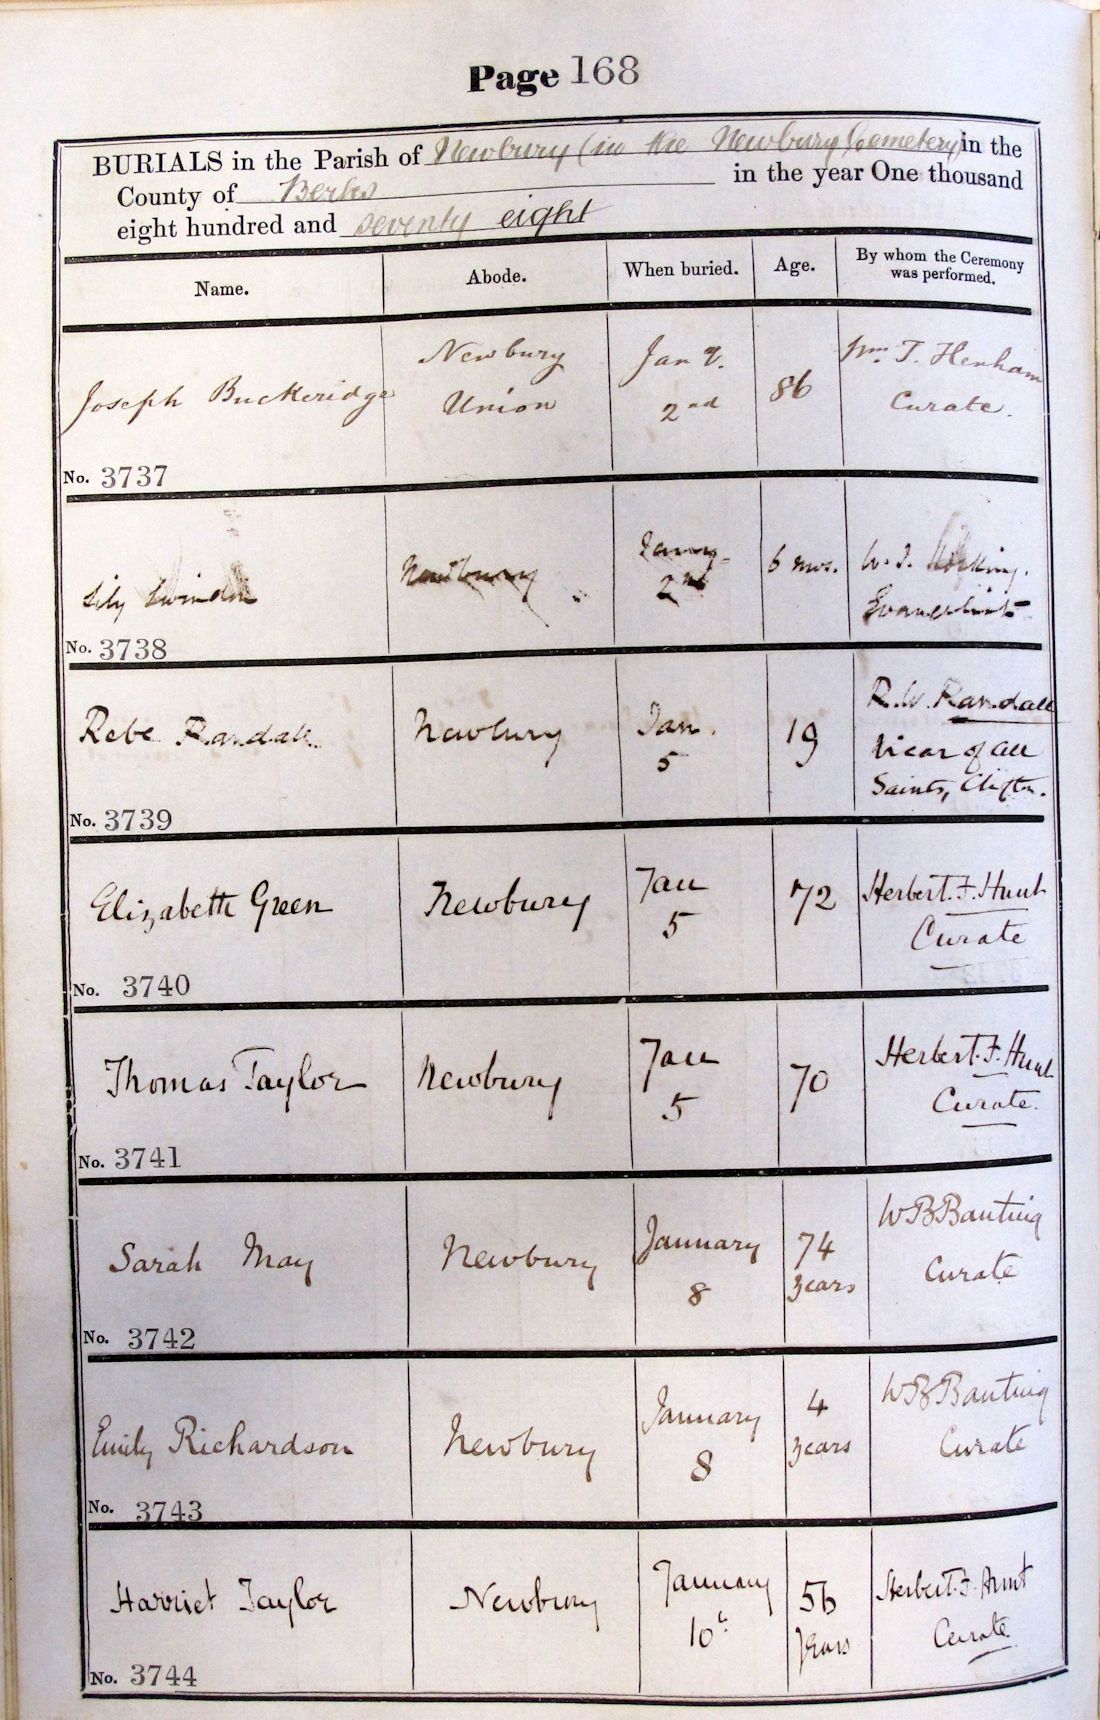 Page 168
BURIALS in the Parish of Newbury (in the Newbury Cemetery) in the
County of Berks in the year One thousand
eight hundred and seventy eight
Name. Abode. When buried. Age. By whom the Ceremony was performed.
Joseph Buckeridge
Newbury
Union
Jan y.
2nd
86
Wm. T. Henham
Curate.
No. 3737
Lily Swindon
Newbury
Janry
2nd
6 mos.
W. J.
Evangelist
No. 3738
Rebe Randall.
Newbury
Jan.
5
19
R. W. Randall
Vicar of All
Saints, Clifton.
No. 3739
Elizabeth Green
Newbury
Jan
5
72
Herbert. F. Hunt
Curate
No. 3740
Thomas Taylor
Newbury
Jan
5
70
Herbert. F. Hunt
Curate.
No. 3741
Sarah May
Newbury
January
8
74
years
W B Banting
Curate
No. 3742
Emily Richardson
Newbury
January
8
4
years
W B Banting
Curate
No. 3743
Harriet Taylor
Newbury
January
10th
56
years
Herbert. F. Hunt
Curate
No. 3744